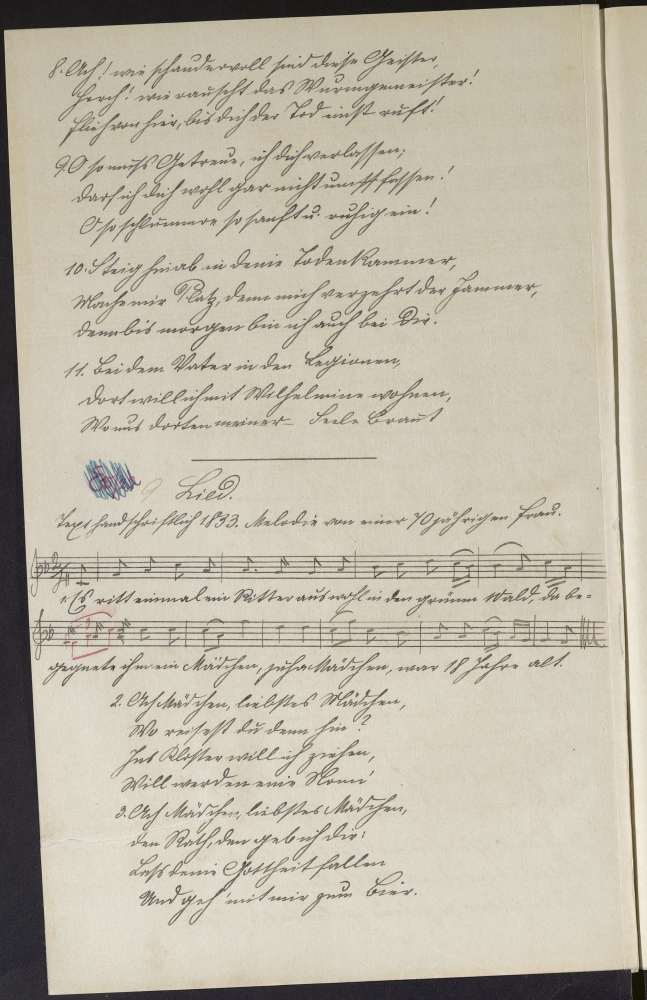 8. Ach! wie schaudervoll sind diese Geister,
Horch! wie rauscht das Wurmgemeister!
Flieh von hier, bis dich der Tod einst ruft!
9. O so muß Getreue, ich dich verlassen;
Darf ich dich wohl gar nicht umfassen!
O so schlummre so sanft u. ruhig ein!
10. Steig hinab in deine Todenkammer,
Mache mir Platz, denn mich verzehrt der Jammer,
Denn bis morgen bin ich auch bei Dir.
11. Bei dem Vater in den Legionen,
Dort will ich mit Wilhelmine wohnen,
Wo uns dorten meiner Seele Braut
9 Lied.
Text handschriftlich 1833. Melodie von einer 70jährigen Frau.
Es ritt einmal ein Ritter aus wohl in den grünen Wald, da be=
gegnete ihm ein Mädchen, juha Mädchen, war 18 Jahre alt.
2. Ach Mädchen, liebstes Mädchen,
Wo reisest du denn hin?
Ins Kloster will ich ziehen,
Will werden eine Nonn'
3. Ach Mädchen, liebstes Mädchen,
den Rath, den geb ich dir:
Laß deine Gottheit fallen
Und geh' mit mir zum Bier.